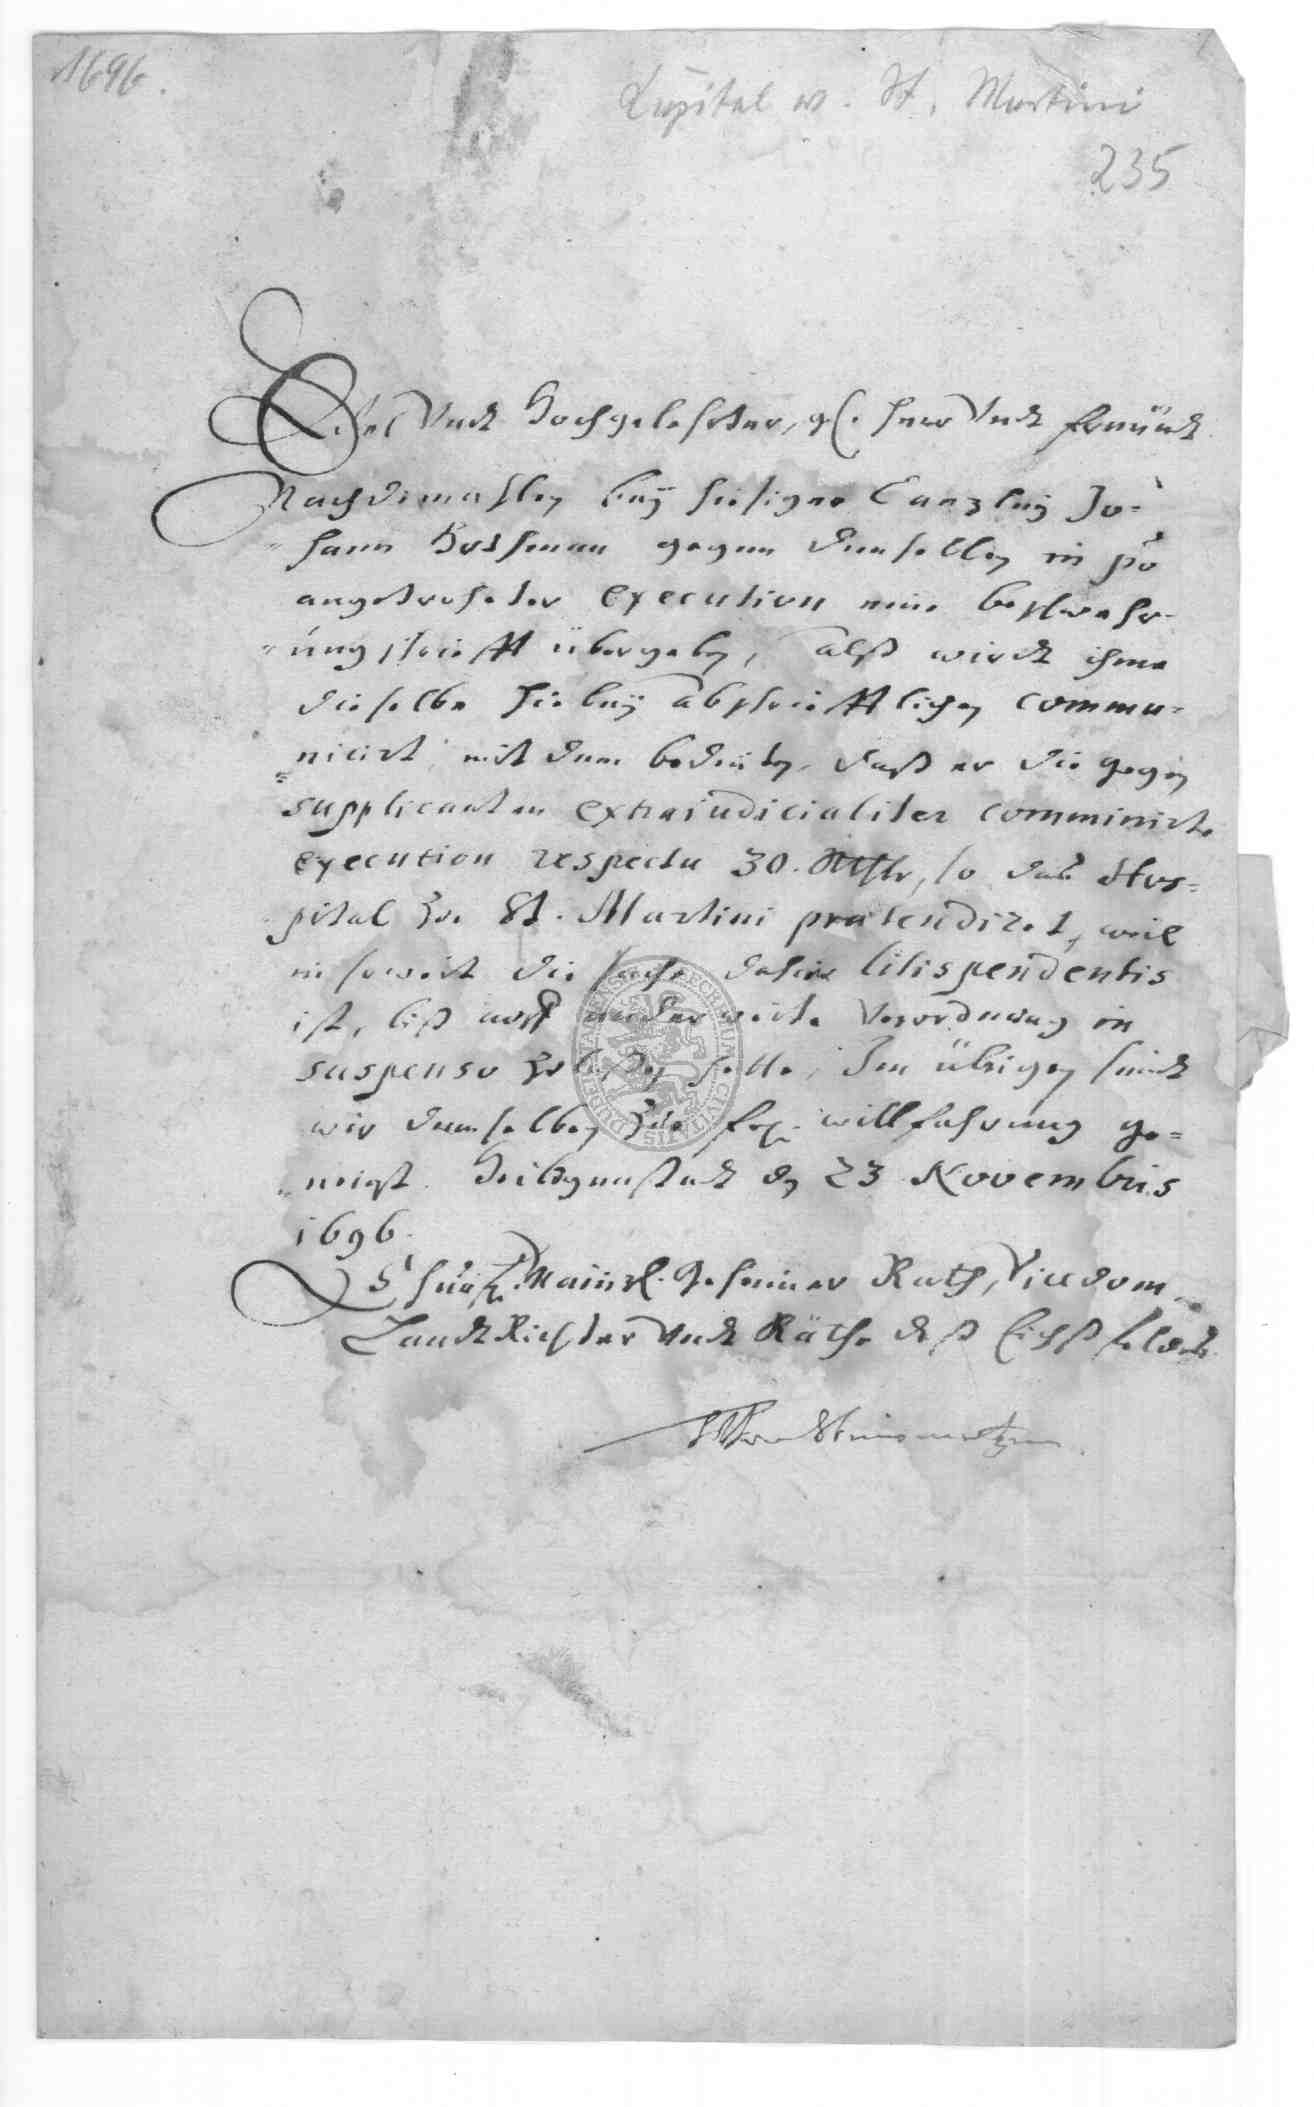 1696.
Kapital v. St. Martini
235
Edel Undt Hochgelehrter, gl. Herr Undt freündt
Nachdemahlen beÿ hiesiger Canzleÿ Jo-
hann Hothman gegen denselben in pto
angetroheter execution eine beschwehr-
ungsschrifft übergeben, alß wirdt ihme
dieselbe hiebeÿ abschrifftlichen commu-
nicirt mit dem bedeüten, daß er die gegen
supplicanten extrajudicialiter comminirte
execution respectu 30. Rthlr, so das Hos-
pital zu St. Martini prætendiret, weil
in soweit die sache dahier litispendentis
ist, biß auff anderweite Verordnung in
suspenso zulaßen solle, Im übrigen seindt
wir demselben zu willfahrung ge-
neigt. Heiligenstadt den 23 Novembris
1696.
Churf. Maintzl. Geheimer Rath, Vicedom
LandtRichter Undt Räthe deß Eichßfeldts
SIGILLUM CIVITATIS DUDERSTADENSIS